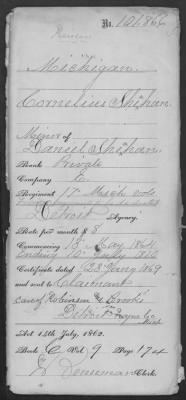 No. 101,866
Michigan.
Cornelius Shihan,
Minor of
Daniel Shihan.
Rank Private
Company E.
Regiment 17 Mich. Vols.
Detroit
Agency.
Rate per month $ 8
Commencing 13 May 1864
Ending
Certificate dated 28 Jany 1869
and sent to Claimant
care of Robinson & Brooks
Detroit Wayne Co.
Mich
Act 14th July, 1862.
Book C Vol. 9 Page 174
Clerk.